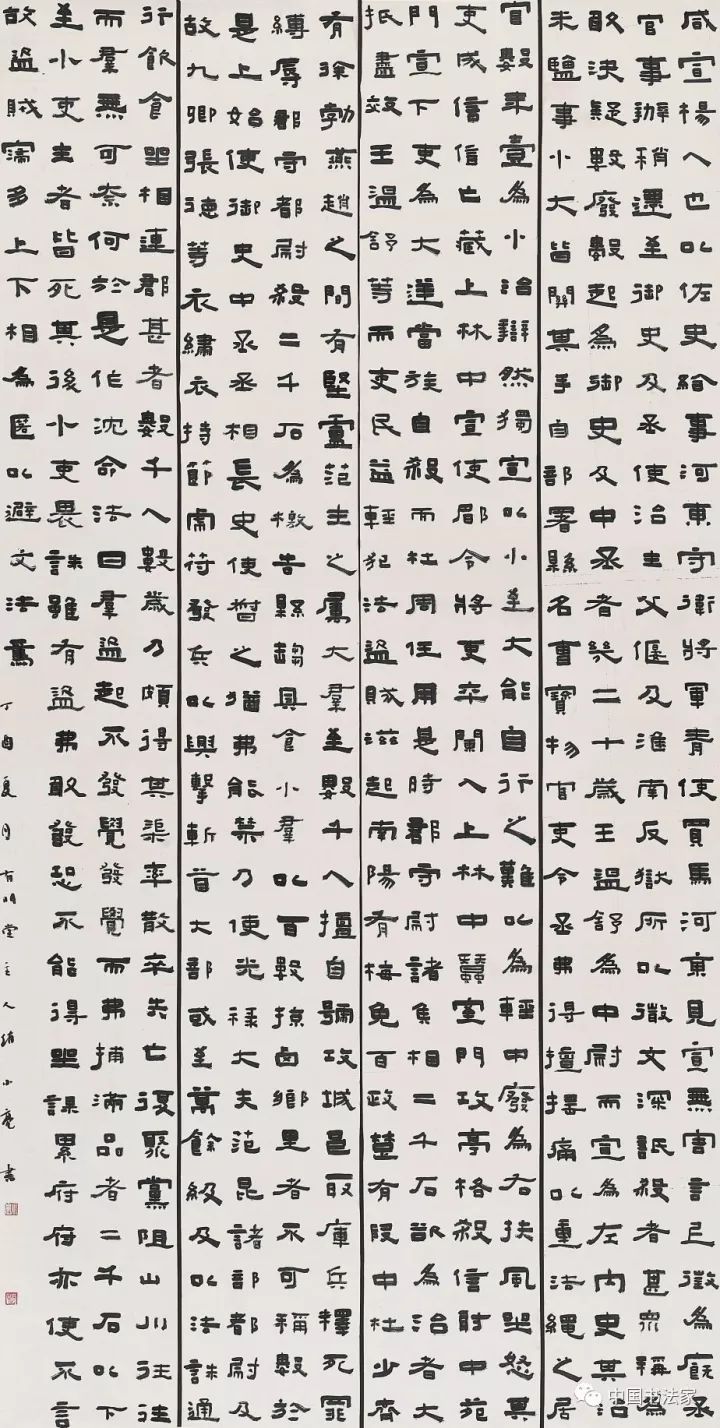 咸宣楊人也以佐史給事河東守衛將軍青使買馬河東見宣無害言上徵為廄丞
官事辦稍遷至御史及丞使治主父偃及淮南反獄所以微文深詆殺者甚眾稱為
敢決疑數廢數起為御史及中丞者幾二十歲王溫舒為中尉而宣為左內史其治
米鹽事小大皆關其手自部署縣名曹寶物官吏令丞弗得擅搖痛以重法繩之居
官數年壹為小治辯然獨宣以小至大能自行之難以為輕中廢為右扶風坐怒其
吏成信信亡藏上林中宣使郿令將吏卒闌入上林中蠶室門攻亭格殺信射中苑
門宣下吏為大逆當族自殺而杜周任用是時郡守尉諸侯相二千石欲為治者大
抵盡效王溫舒等而吏民益輕犯法盜賊滋起南陽有梅免百政楚有段中杜少齊
有徐勃燕趙之間有堅盧范主之屬大羣至數千人擅自號攻城邑取庫兵釋死罪
縛辱郡守都尉殺二千石為檄告縣趨具食小羣以百數掠鹵鄉里者不可稱數於
是上始使御史中丞丞相長史使督之猶弗能禁乃使光祿大夫范昆諸部都尉及
故九卿張德等衣繡衣持節虎符發兵以興擊斬首大部或至萬餘級及以法誅通
行飲食坐相連郡甚者數千人數歲乃頗得其渠率散卒失亡復聚黨阻山川往往
而羣無可奈何於是作沈命法曰羣盜起不發覺發覺而弗捕滿品者二千石以下
至小吏主者皆死其後小吏畏誅雖有盜弗敢發恐不能得坐課累府府亦使不言
故盜賊寖多上下相為匿以避文法焉
丁酉夏月有明堂主人小亮書
中国书法家